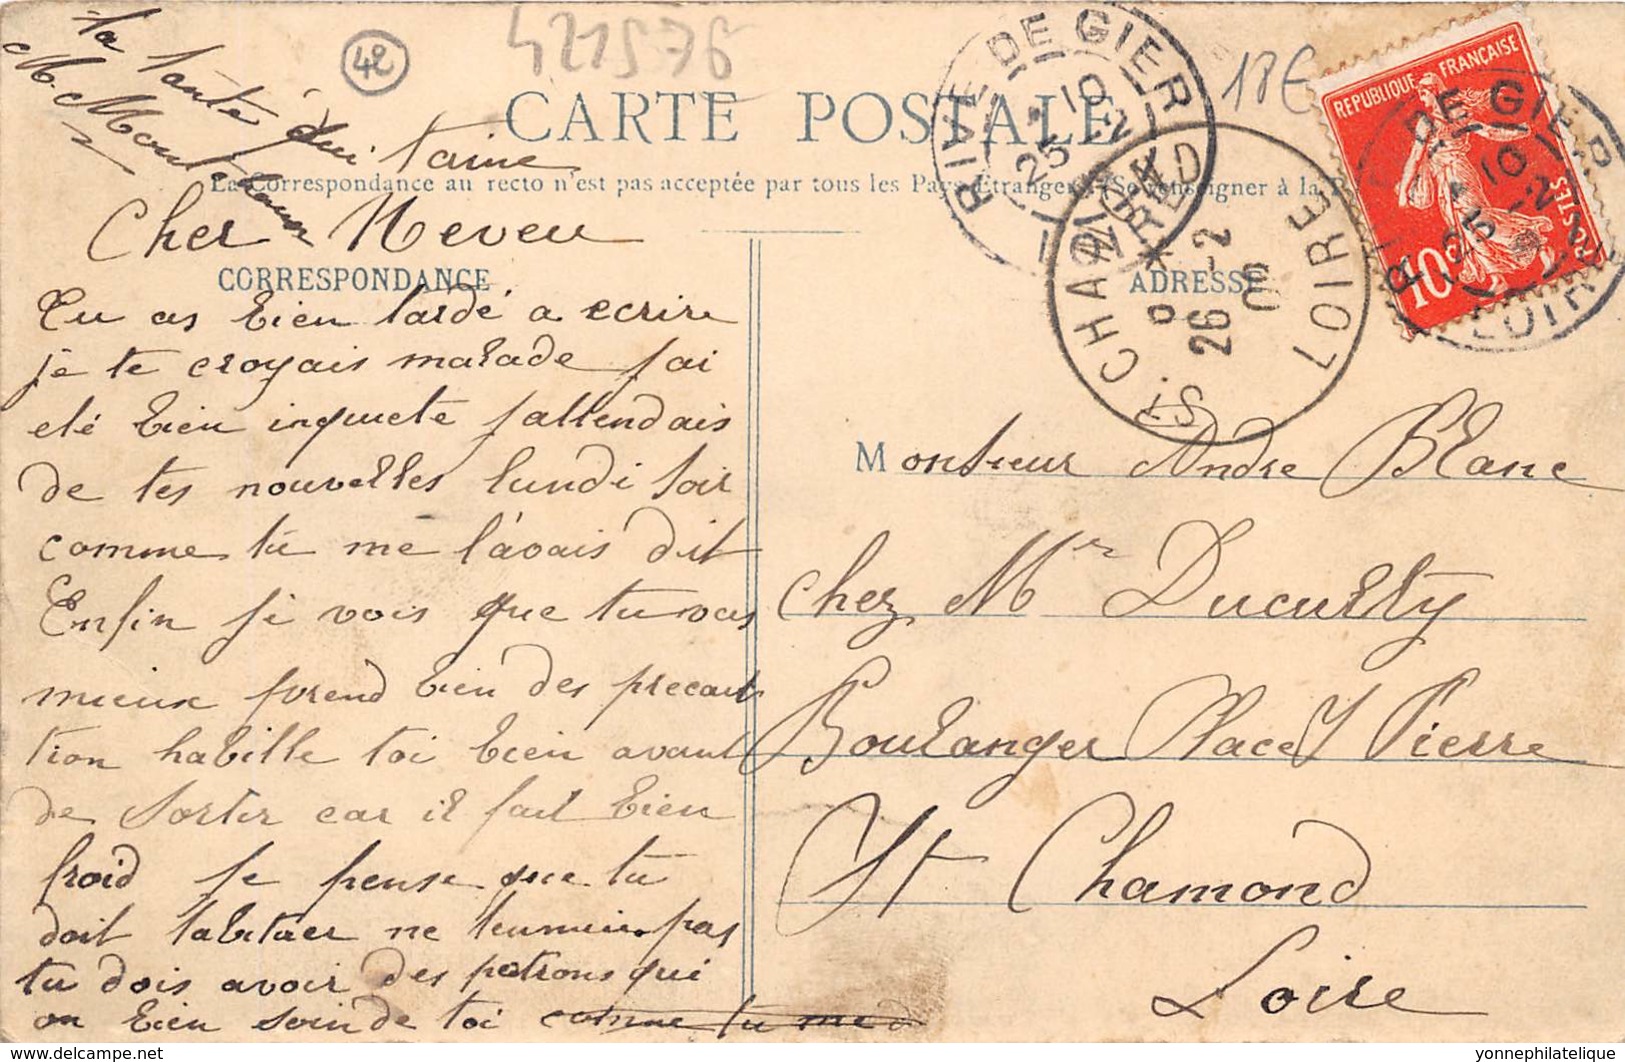 ta tante qui t'aime
M. Mont
42
421576
18€
CARTE POSTALE
La Correspondance au recto n'est pas acceptée par tous les Pays Étrangers (Se renseigner à la P
RIVE DE GIER
10
25 -2
LOIRE
ST CHAMOND
9
26 -2
08
LOIRE
REPUBLIQUE FRANÇAISE
10c
POSTES
R. DE GIER
10
25 -2
LOIRE
CORRESPONDANCE
ADRESSE
Cher Neveu
Tu as bien tardé a ecrire
je te croyais malade jai
eté bien inquiete jattendais
de tes nouvelles lundi soir
comme tu me l'avais dit
Enfin je vois que tu vas
mieux prend bien des precau
tion habille toi bien avant
de sortir car il fait bien
froid je pense que tu
doit tabituer ne tennuie pas
tu dois avoir des patrons qui
on bien soin de toi comme tu me d
Monsieur Andre Blanc
chez Mr Ducully
Boulanger Place St Pierre
St Chamond
Loire
yonnephilatelique